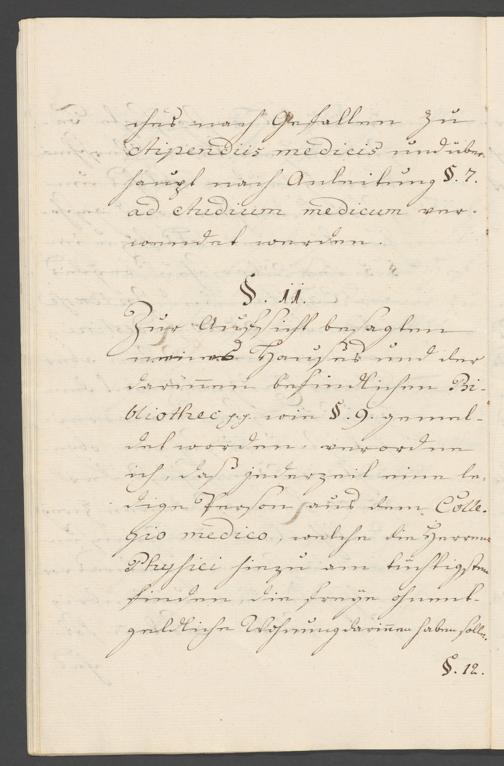 ches nach Gefallen zu
Stipendiis medicis und über-
haupt nach Anleitung §. 7.
ad studium medicum ver-
wendet werden.
§. 11.
Zur Aufsicht besagten
meines Hauses und der
darinnen befindlichen Bi-
bliothec pp. wie §. 9. gemel-
det worden, verordne
ich, daß jederzeit eine le-
dige Person aus dem Colle-
gio medico, welche die Herren
Physici hiezu am tüchtigsten
finden, die freye ohnent-
geldliche Wohnung darinnen haben solle.
§. 12.